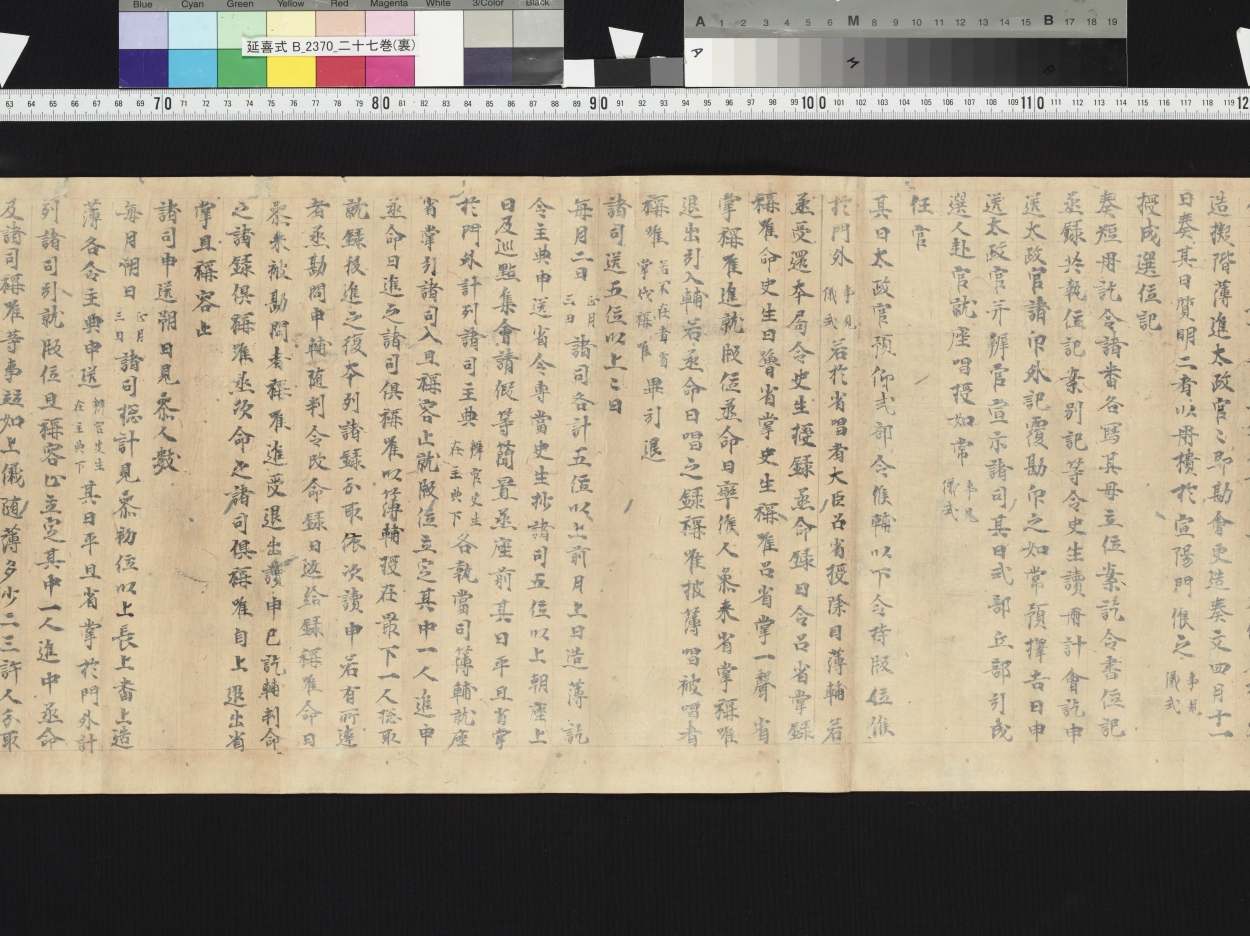 Blue Cyan Green Yellow Red Magenta White 3/Color Black
延喜式 B_2370_二十七巻(裏)
A 1 2 3 4 5 6 M 8 9 10 11 12 13 14 15 B 17 18 19
A M B
63 64 65 66 67 68 69 70 71 72 73 74 75 76 77 78 79 80 81 82 83 84 85 86 87 88 89 90 91 92 93 94 95 96 97 98 99 100 101 102 103 104 105 106 107 108 109 110 111 112 113 114 115 116 117 118 119 12
造擬階薄進太政官〻即勘會更造奏文四月十一
日奏其日質明二省以冊樻於宣陽門候之 事見儀式
授成選位記
奏短冊訖令諸番各寫其毋立位案訖令書位記
丞録共執位記案別記等令史生讀冊計會訖申
送太政官諸印外記覆勘印之如常預擇吉日申
送太政官并辨官宣示諸司其日式部丘部引成
選人赴官就座唱授如常 事見儀式
任官
其日太政官預仰式部令候輔以下令持版位候
於門外 事見儀式 若於省唱者大臣召省授除目薄輔若
丞受還本局令史生授録丞命録曰令召省掌録
稱唯命史生曰喚省掌史生稱唯召省掌一聲省
掌稱唯進就版位丞命曰率候人叅来省掌稱唯
退出引入輔若丞命曰唱之録稱唯披薄唱被唱者
稱唯 若不在者省掌代稱唯 畢引退
諸司送五位以上〻日
毎月二日 正月三日 諸司各計五位以上前月上日造薄訖
令主典申送省令專當史生抄諸司五位以上朝座上
日及巡點集會請假等簡置丞座前其日平旦省掌
於門外計列諸司主典 辨官史生在主典下 各執當司薄輔就座
省掌引諸司入且稱容止就版位立定其中一人進申
丞命曰進之諸司俱稱唯以簿輔授在最下一人惣取
就録後進之復本列諸録分取依次讀申若有所違
者丞勘問申輔随判令改命録曰返給録稱唯命曰
叅来被勘問者稱唯進受退出讀申已訖輔判命
之諸録俱稱唯丞次命之諸司俱稱唯自上退出省
掌且稱容止
諸司申送朔日見叅人數
毎月朔日 正月三日 諸司惣計見叅初位以上長上番上造
薄各令主典申送 辨官史生在主典下 其日平旦省掌於門外計
列諸司引就版位且稱容止立定其中一人進申丞命
及諸司稱唯等事趍如上儀随薄多少二三許人分取